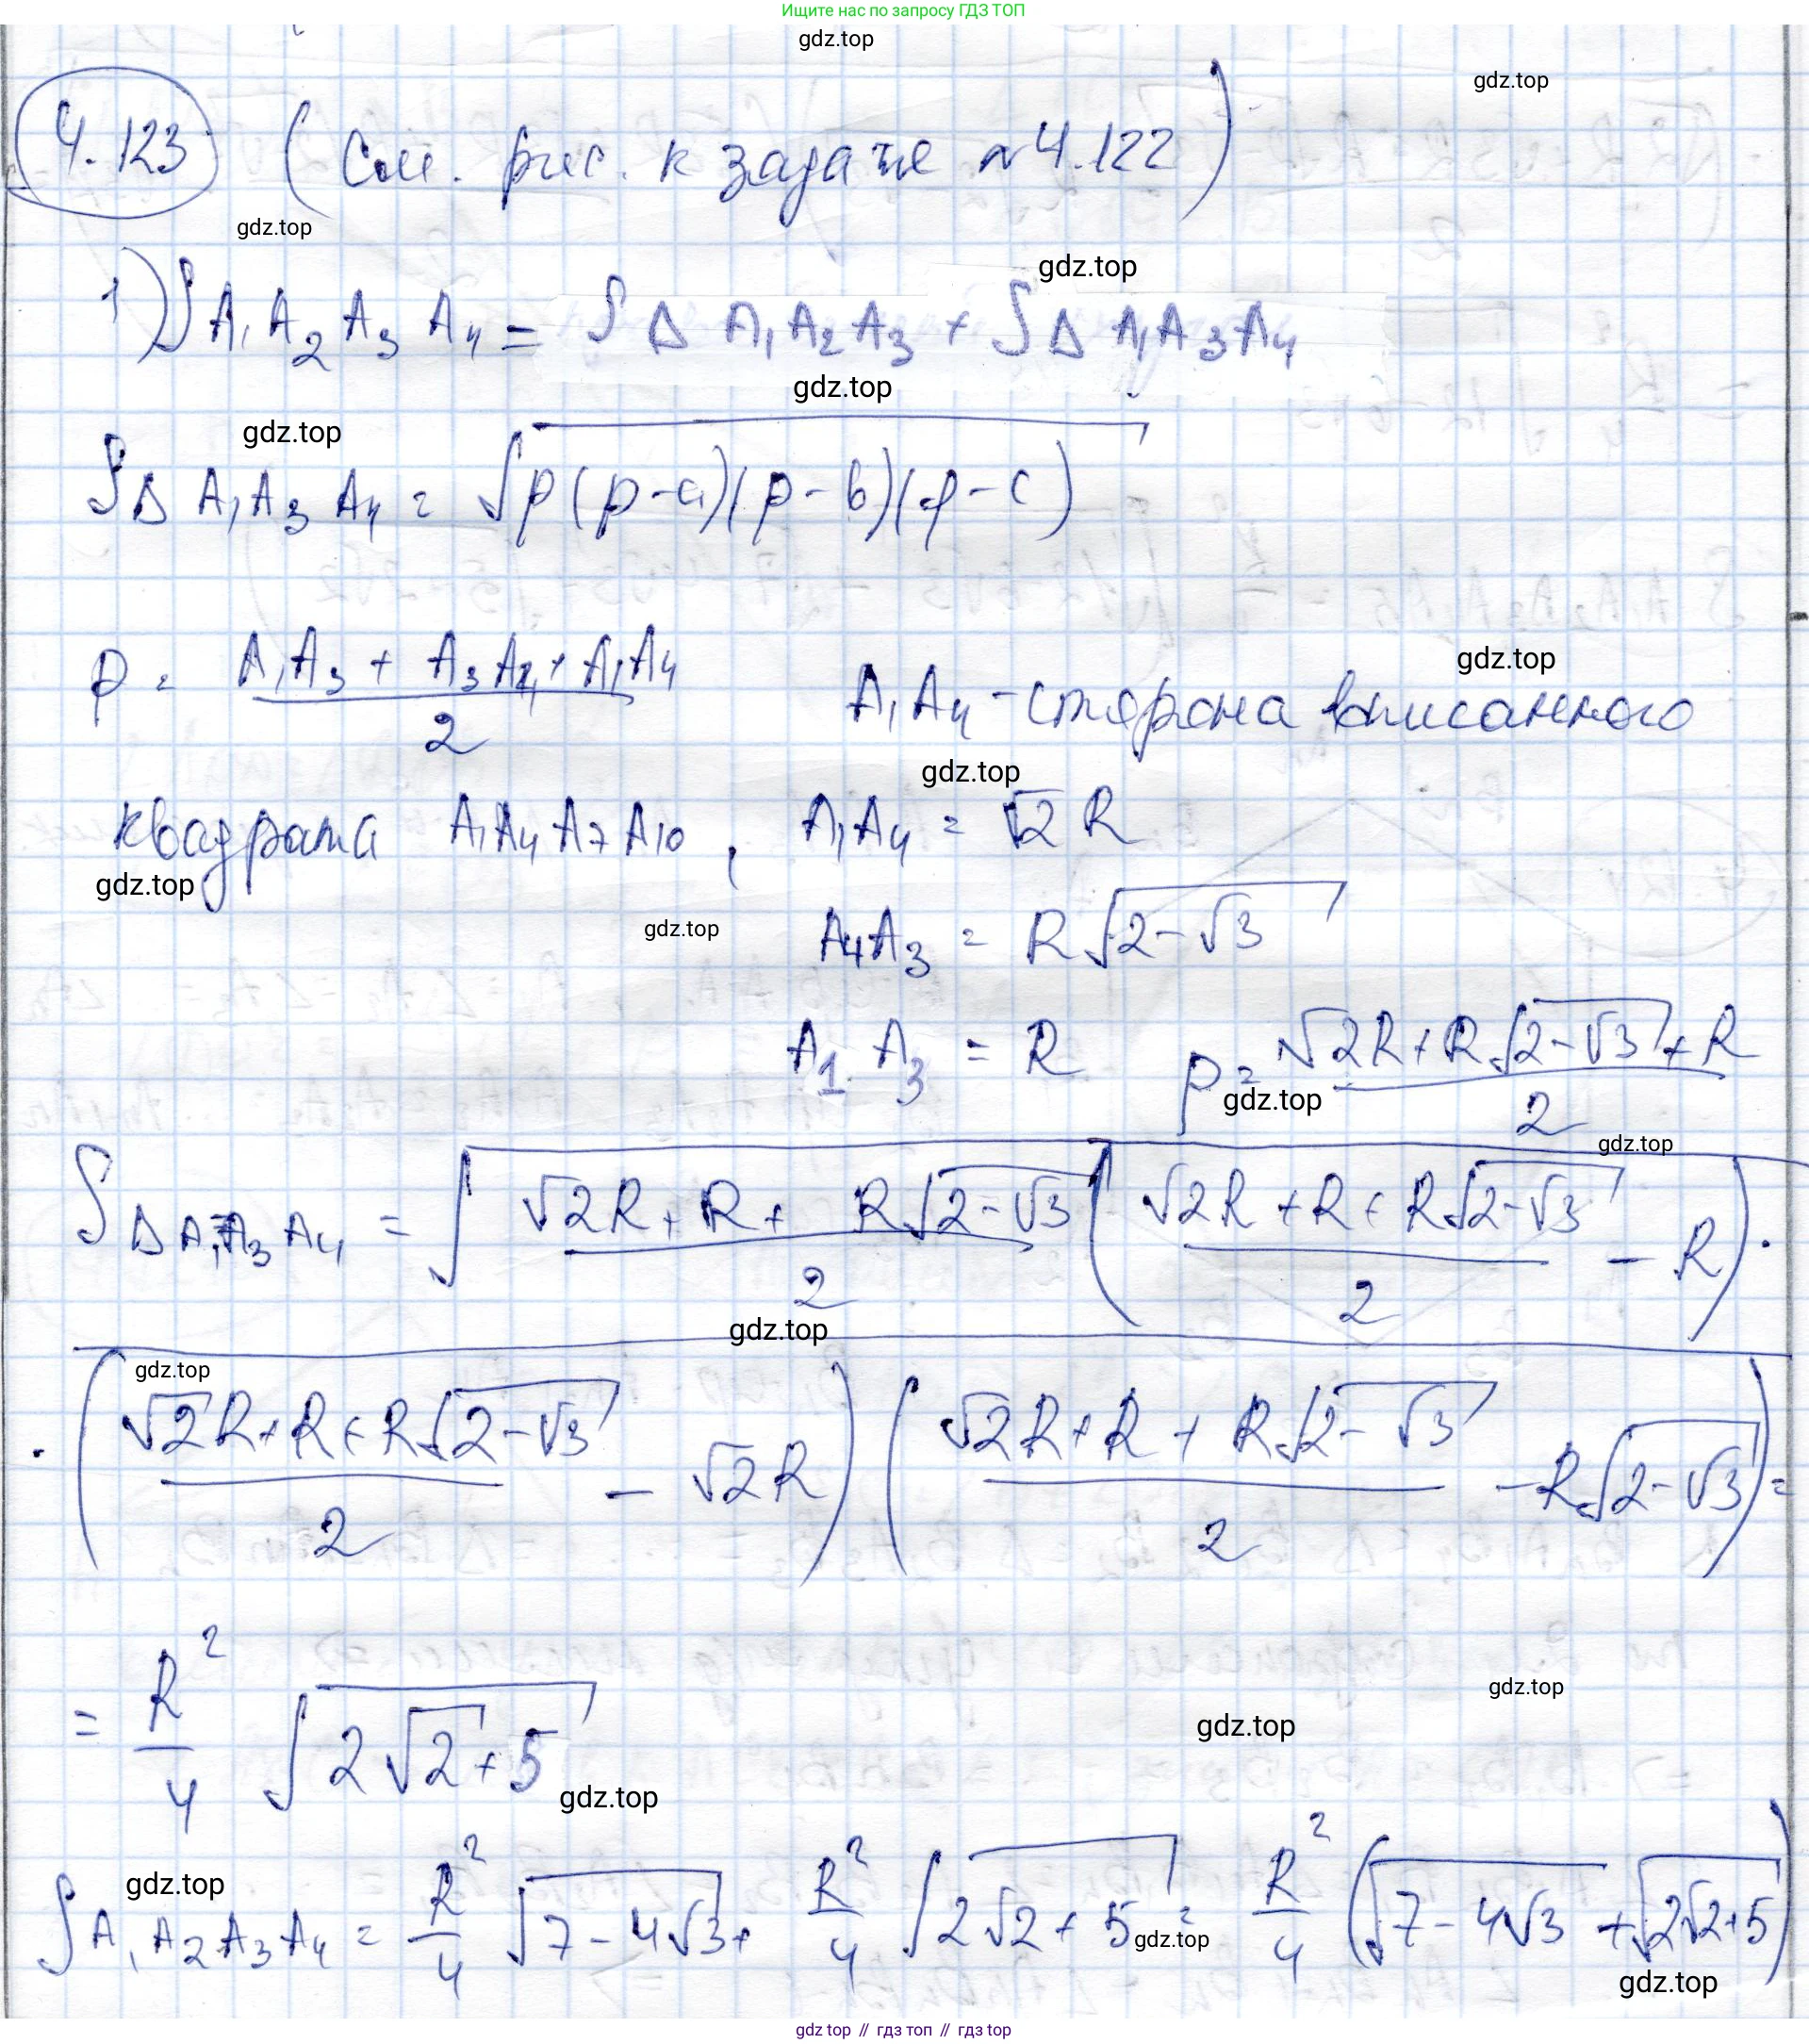 Ищите нас по запросу ГДЗ ТОП
gdz.top
gdz.top
4.123 (См. рис. к задаче №4.122)
gdz.top
gdz.top
1) S A₁A₂A₃A₄ = S Δ A₁A₂A₃ + S Δ A₁A₃A₄
gdz.top
gdz.top
S Δ A₁A₃A₄ = √(p(p-a)(p-b)(p-c))
gdz.top
p = (A₁A₃ + A₃A₄ + A₁A₄)/2 A₁A₄ - сторона вписанного
gdz.top
квадрата A₁A₄A₇A₁₀, A₁A₄ = √2 R
gdz.top
gdz.top
A₄A₃ = R√(2-√3)
A₁A₃ = R p = (√2R + R√(2-√3) + R)/2
gdz.top
gdz.top
S Δ A₁A₃A₄ = √((√2R + R + R√(2-√3))/2 ((√2R + R + R√(2-√3))/2 - R) ·
gdz.top
gdz.top
· ((√2R + R + R√(2-√3))/2 - √2R) ((√2R + R + R√(2-√3))/2 - R√(2-√3)) =
gdz.top
gdz.top
= R²/4 √(2√2+5)
gdz.top
gdz.top
S A₁A₂A₃A₄ = R²/4 √(7-4√3) + R²/4 √(2√2+5) = R²/4 (√(7-4√3) + √(2√2+5))
gdz.top
gdz.top
gdz top // гдз топ // гдз top